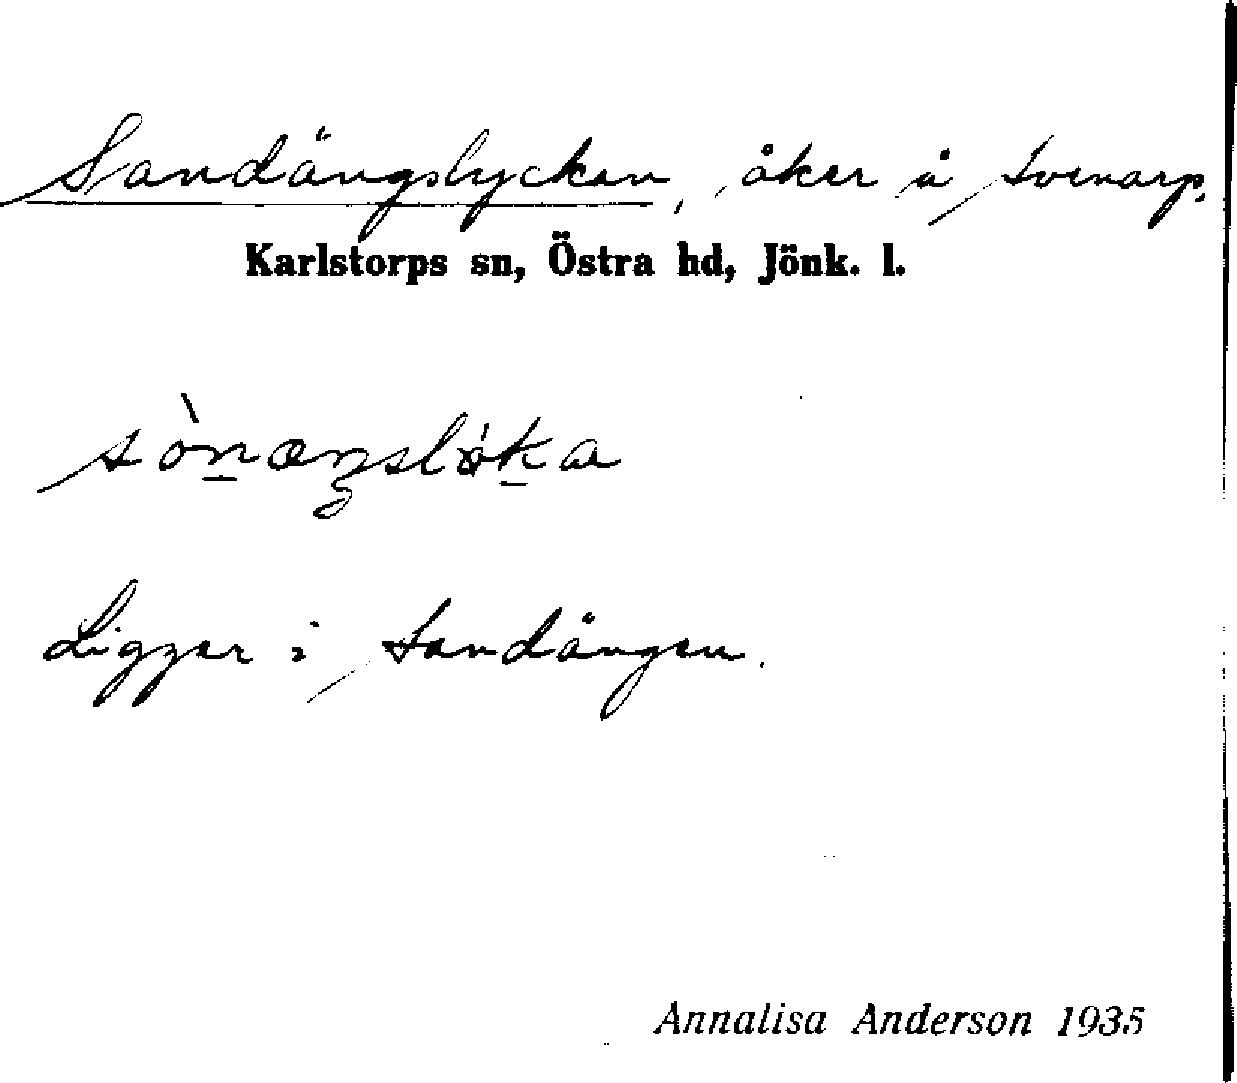 Sandängslycken, åker å Svenarp.
Karlstorps sn, Östra hd, Jönk. l.
sònæŋslø̀ka
Ligger i Sandängen.
Annalisa Anderson 1935